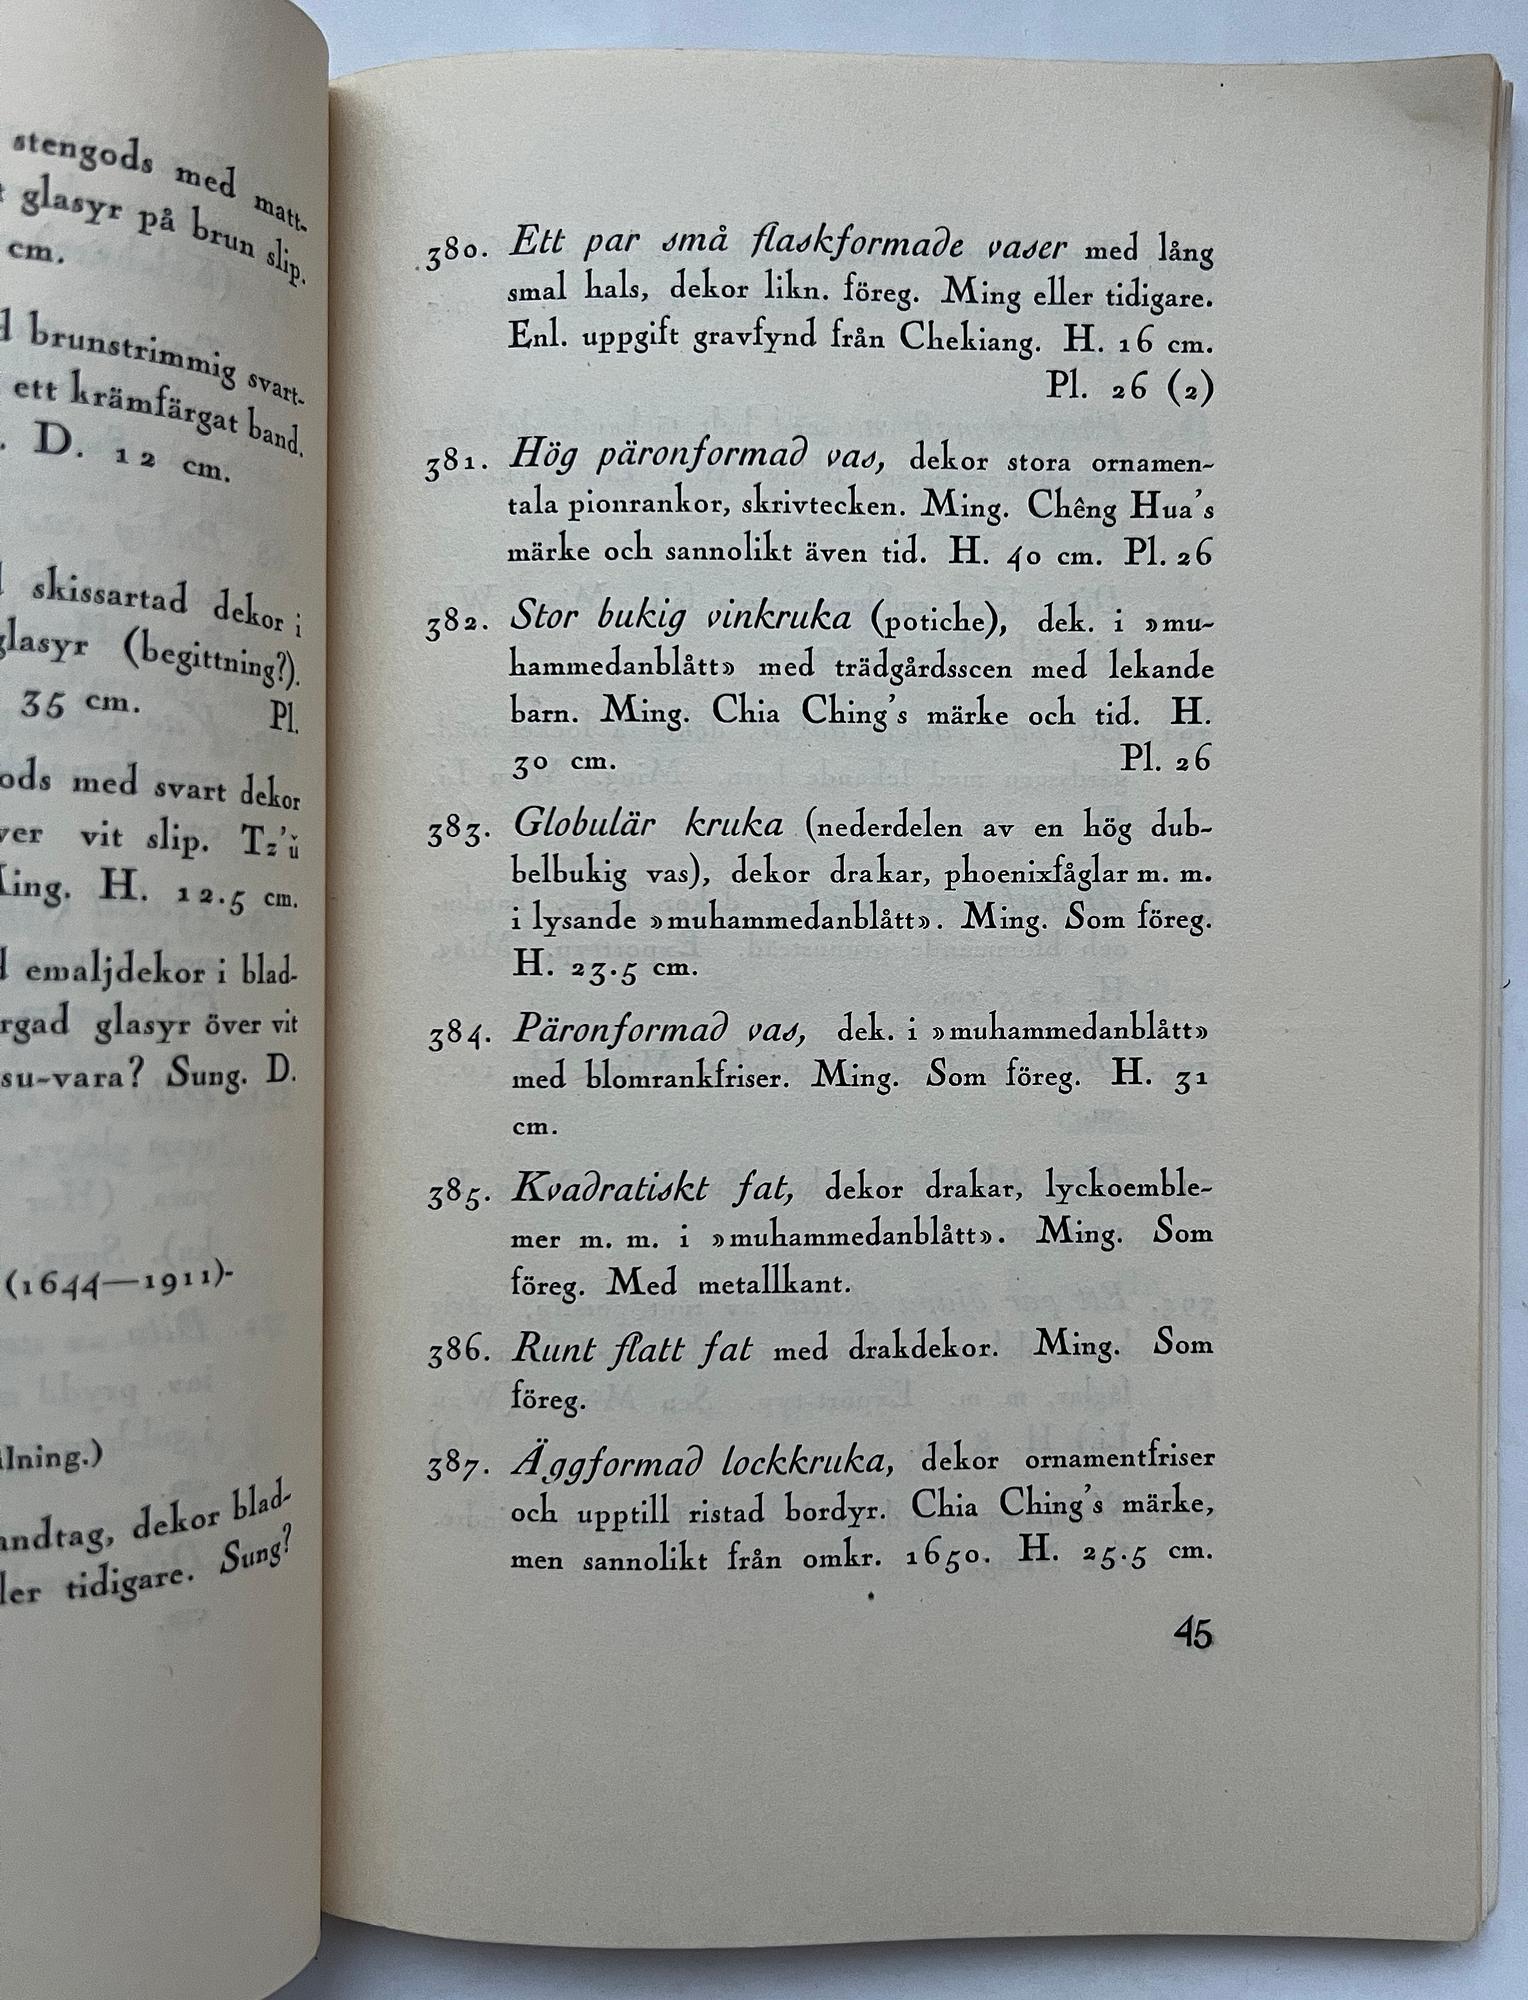 stengods med matt-
glasyr på brun slip.
cm.
brunstrimmig svart-
ett krämfärgat band.
D. 12 cm.
skissartad dekor i
glasyr (begittning?).
35 cm. Pl.
med svart dekor
vit slip. Tz'ŭ
H. 12.5 cm.
emaljdekor i blad-
glasyr över vit
su-vara? Sung. D.
(1644—1911)-
dekor blad-
tidigare. Sung?
380. Ett par små flaskformade vaser med lång
smal hals, dekor likn. föreg. Ming eller tidigare.
Enl. uppgift gravfynd från Chekiang. H. 16 cm.
Pl. 26 (2)
381. Hög päronformad vas, dekor stora ornamen-
tala pionrankor, skrivtecken. Ming. Chêng Hua's
märke och sannolikt även tid. H. 40 cm. Pl. 26
382. Stor bukig vinkruka (potiche), dek. i »mu-
hammedanblått» med trädgårdsscen med lekande
barn. Ming. Chia Ching's märke och tid. H.
30 cm. Pl. 26
383. Globulär kruka (nederdelen av en hög dub-
belbukig vas), dekor drakar, phoenixfåglar m. m.
i lysande »muhammedanblått». Ming. Som föreg.
H. 23.5 cm.
384. Päronformad vas, dek. i »muhammedanblått»
med blomrankfriser. Ming. Som föreg. H. 31
cm.
385. Kvadratiskt fat, dekor drakar, lyckoemble-
mer m. m. i »muhammedanblått». Ming. Som
föreg. Med metallkant.
386. Runt flatt fat med drakdekor. Ming. Som
föreg.
387. Äggformad lockkruka, dekor ornamentfriser
och upptill ristad bordyr. Chia Ching's märke,
men sannolikt från omkr. 1650. H. 25.5 cm.
45